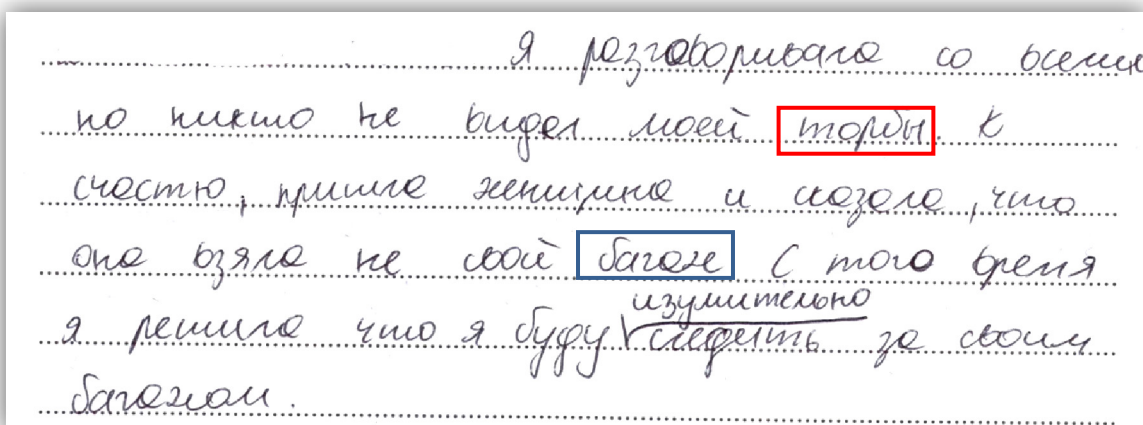 Я разговаривала со всеми
но никто не видел моей торбы. К
счастю, пришла женщина и сказала, что
она взяла не свой багаж С того время
изумительно
я решила что я буду следить за своим
багажом.